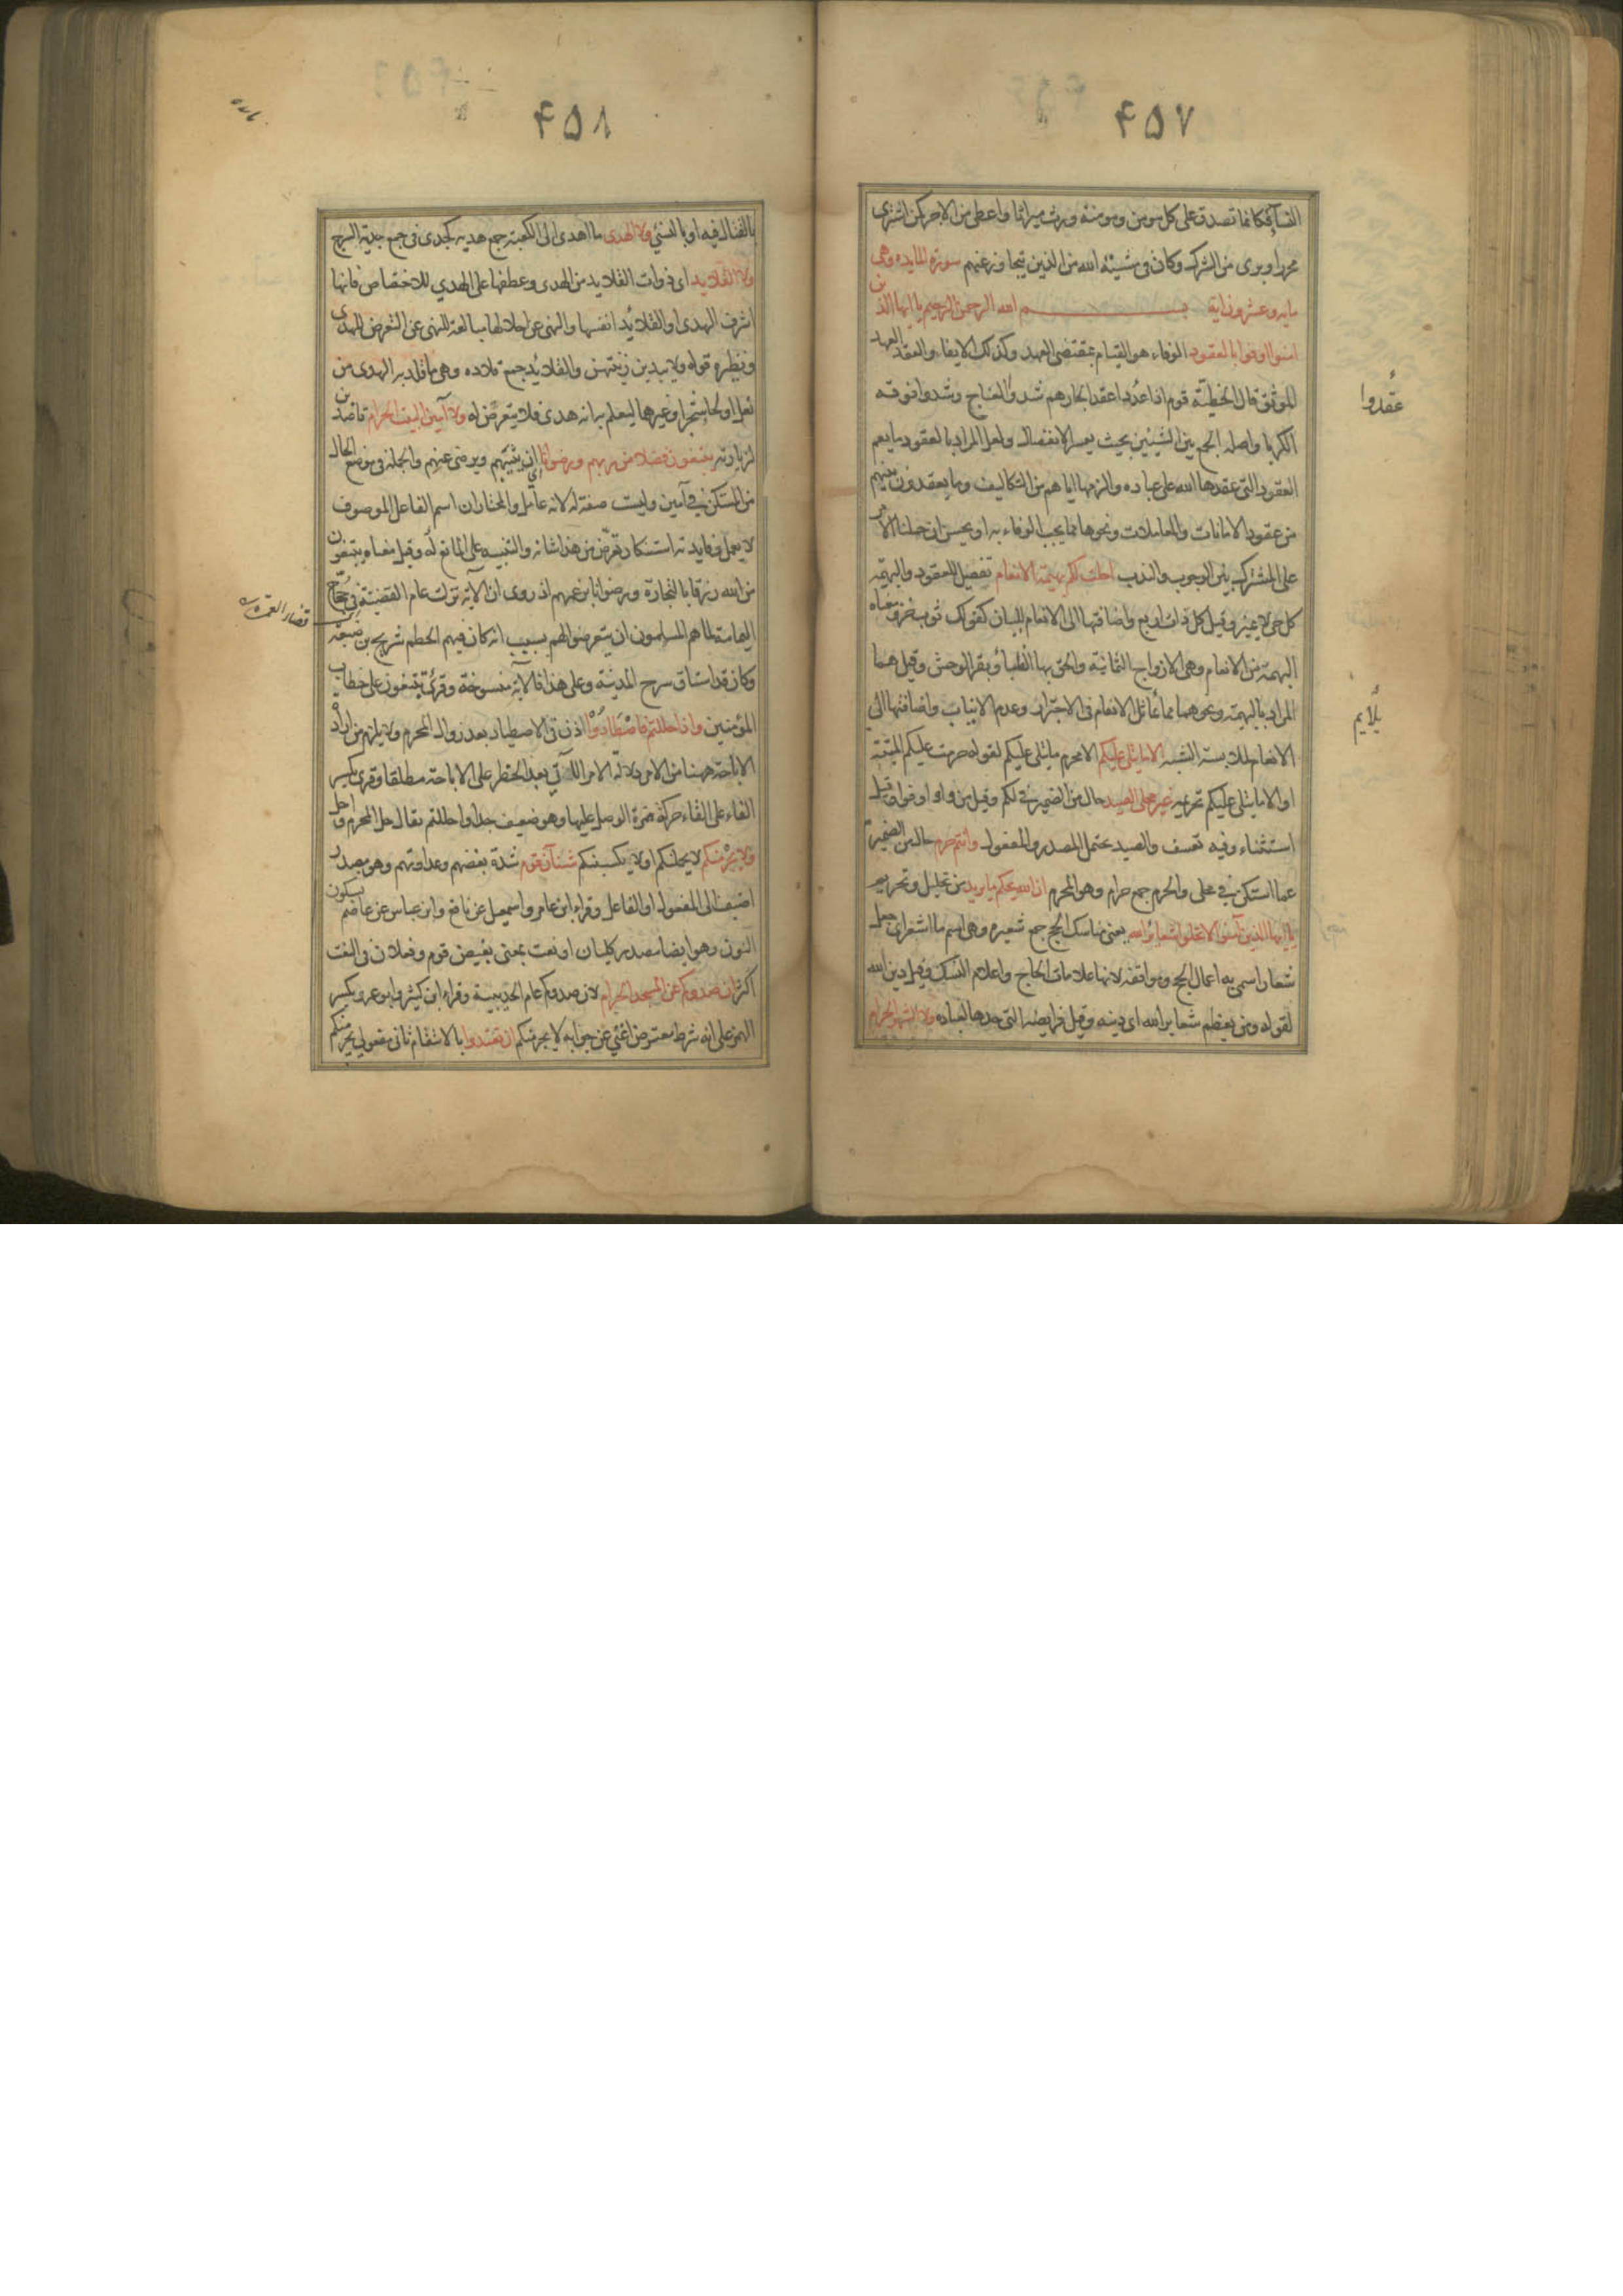 ٤٥٧
النسآء فكانما تصدق على كل مومن ومومنة ورث ميراثا واعطى من الاجر كمن اشترى
محررا وبرى من الشرك وكان فى مشيئة الله من الذين يتجاوز عنهم سورة المايده وهى
مايه وعشرون اية بسم الله الرحمن الرحيم يا ايها الذين
امنوا اوفوا بالعقود الوفاء هو القيام بمقتضى العهد وكذلك الايفاء والعقد العهد
الموثق قال الحطيئة قوم اذا عقدوا عقدا لجارهم شدوا العناج وشدوا فوقه
عقدوا
الكربا واصله الجمع بين الشيئين بحيث يعسر الانفصال ولعل المراد بالعقود ما يعم
العقود التى عقدها الله على عباده والزمها اياهم من التكاليف وما يعقدون بينهم
من عقود الامانات والمعاملات ونحوها مما يجب الوفاء به او يحسن ان حملنا الامر
على المشترك بين الوجوب والندب احلت لكم بهيمة الانعام تفصيل للعقود والبهيمة
كل حى لا يميز وقيل كل ذات اربع واضافتها الى الانعام للبيان كقولك ثوب خز ومعناه
البهيمة من الانعام وهى الازواج الثمانية والحق بها الظباء وبقر الوحش وقيل هما
المراد بالبهيمة ونحوهما مما يماثل الانعام فى الاجترار وعدم الانياب واضافتها الى
يلايم
الانعام لملابسة الشبه الا ما يتلى عليكم الا محرم ما يتلى عليكم لقوله حرمت عليكم الميتة
او الا ما يتلى عليكم تحريمه غير محلى الصيد حال من الضمير فى لكم وقيل من واو اوفوا وقيل
استثناء وفيه تعسف والصيد يحتمل المصدر والمفعول وانتم حرم حال من الضمير
عما استكن فى محلى والحرم جمع حرام وهو المحرم ان الله يحكم ما يريد من تحليل وتحريم
يا ايها الذين آمنوا لا تحلوا شعائر الله يعنى مناسك الحج جمع شعيره وهى اسم ما اشعر اى جعل
شعارا سمى به اعمال الحج ومواقفه لانها علامات الحاج واعلام النسك وقيل دين الله
لقوله ومن يعظم شعاير الله اى دينه وقيل فرايضه التى حدها لعباده ولا الشهر الحرام
٤٥٨
بالقتال فيه او بالنسئ ولا الهدى ما اهدى الى الكعبة جمع هديه كجدى فى جمع جدية السرج
ولا القلايد اى ذوات القلايد من الهدى وعطفها على الهدي للاختصاص فانها
اشرف الهدى او القلائد انفسها والنهى عن احلالها مبالغة للنهى عن التعرض للهدى
ونظيره قوله ولا يبدين زينتهن والقلائد جمع قلاده وهى ما قلد به الهدى من
نعل او لحا شجر او غيرهما ليعلم به انه هدى فلا يتعرض له ولا آمين البيت الحرام قاصدين
لزيارته يبتغون فضلا من ربهم ورضوانا ان يثيبهم ويرضى عنهم والجملة فى موضع الحال
من المستكن فى آمين وليست صفة له لانه عامل والمختار ان اسم الفاعل الموصوف
لا يعمل وفايدته استنكار تعرض من هذا شانه والتنبيه على المانع له وقيل معناه يبتغون
من الله رزقا بالتجارة ورضوانا بزعمهم اذ روى ان الاية نزلت عام القضية فى حجاج
اليمامة لما هم المسلمون ان يتعرضوا لهم بسبب انه كان فيهم الحطم شريح بن ضبيعة
وكان قد استاق سرح المدينة وعلى هذا فالاية منسوخة وقرئ تبتغون على خطاب
المؤمنين واذا حللتم فاصطادوا اذن فى الاصطياد بعد زوال المحرم ولا يلزم من اراده
الاباحة ههنا من الامر دلالة الامر الآتي بعد الحظر على الاباحة مطلقا وقرى بكسر
الفاء على القاء حركة همزة الوصل عليها وهو ضعيف جدا واحللتم يقال حل المحرم واحل
ولا يجرمنكم لا يحملنكم او لا يكسبنكم شنآن قوم شدة بغضهم وعداوتهم وهو مصدر
اضيف الى المفعول او الفاعل وقراء ابن عامر واسمعيل عن نافع وابن عباس عن عاصم بسكون
النون وهو ايضا مصدر كليان او نعت بمعنى بغيض قوم وفعلان فى النعت
اكثر ان صدوكم عن المسجد الحرام لان صدوكم عام الحديبية وقراء ابن كثير وابو عمرو بكسر
الهمز على انه شرط معترض اغنى عن جوابه لا يجرمنكم ان تعتدوا بالانتقام ثانى مفعولى يجرمنكم